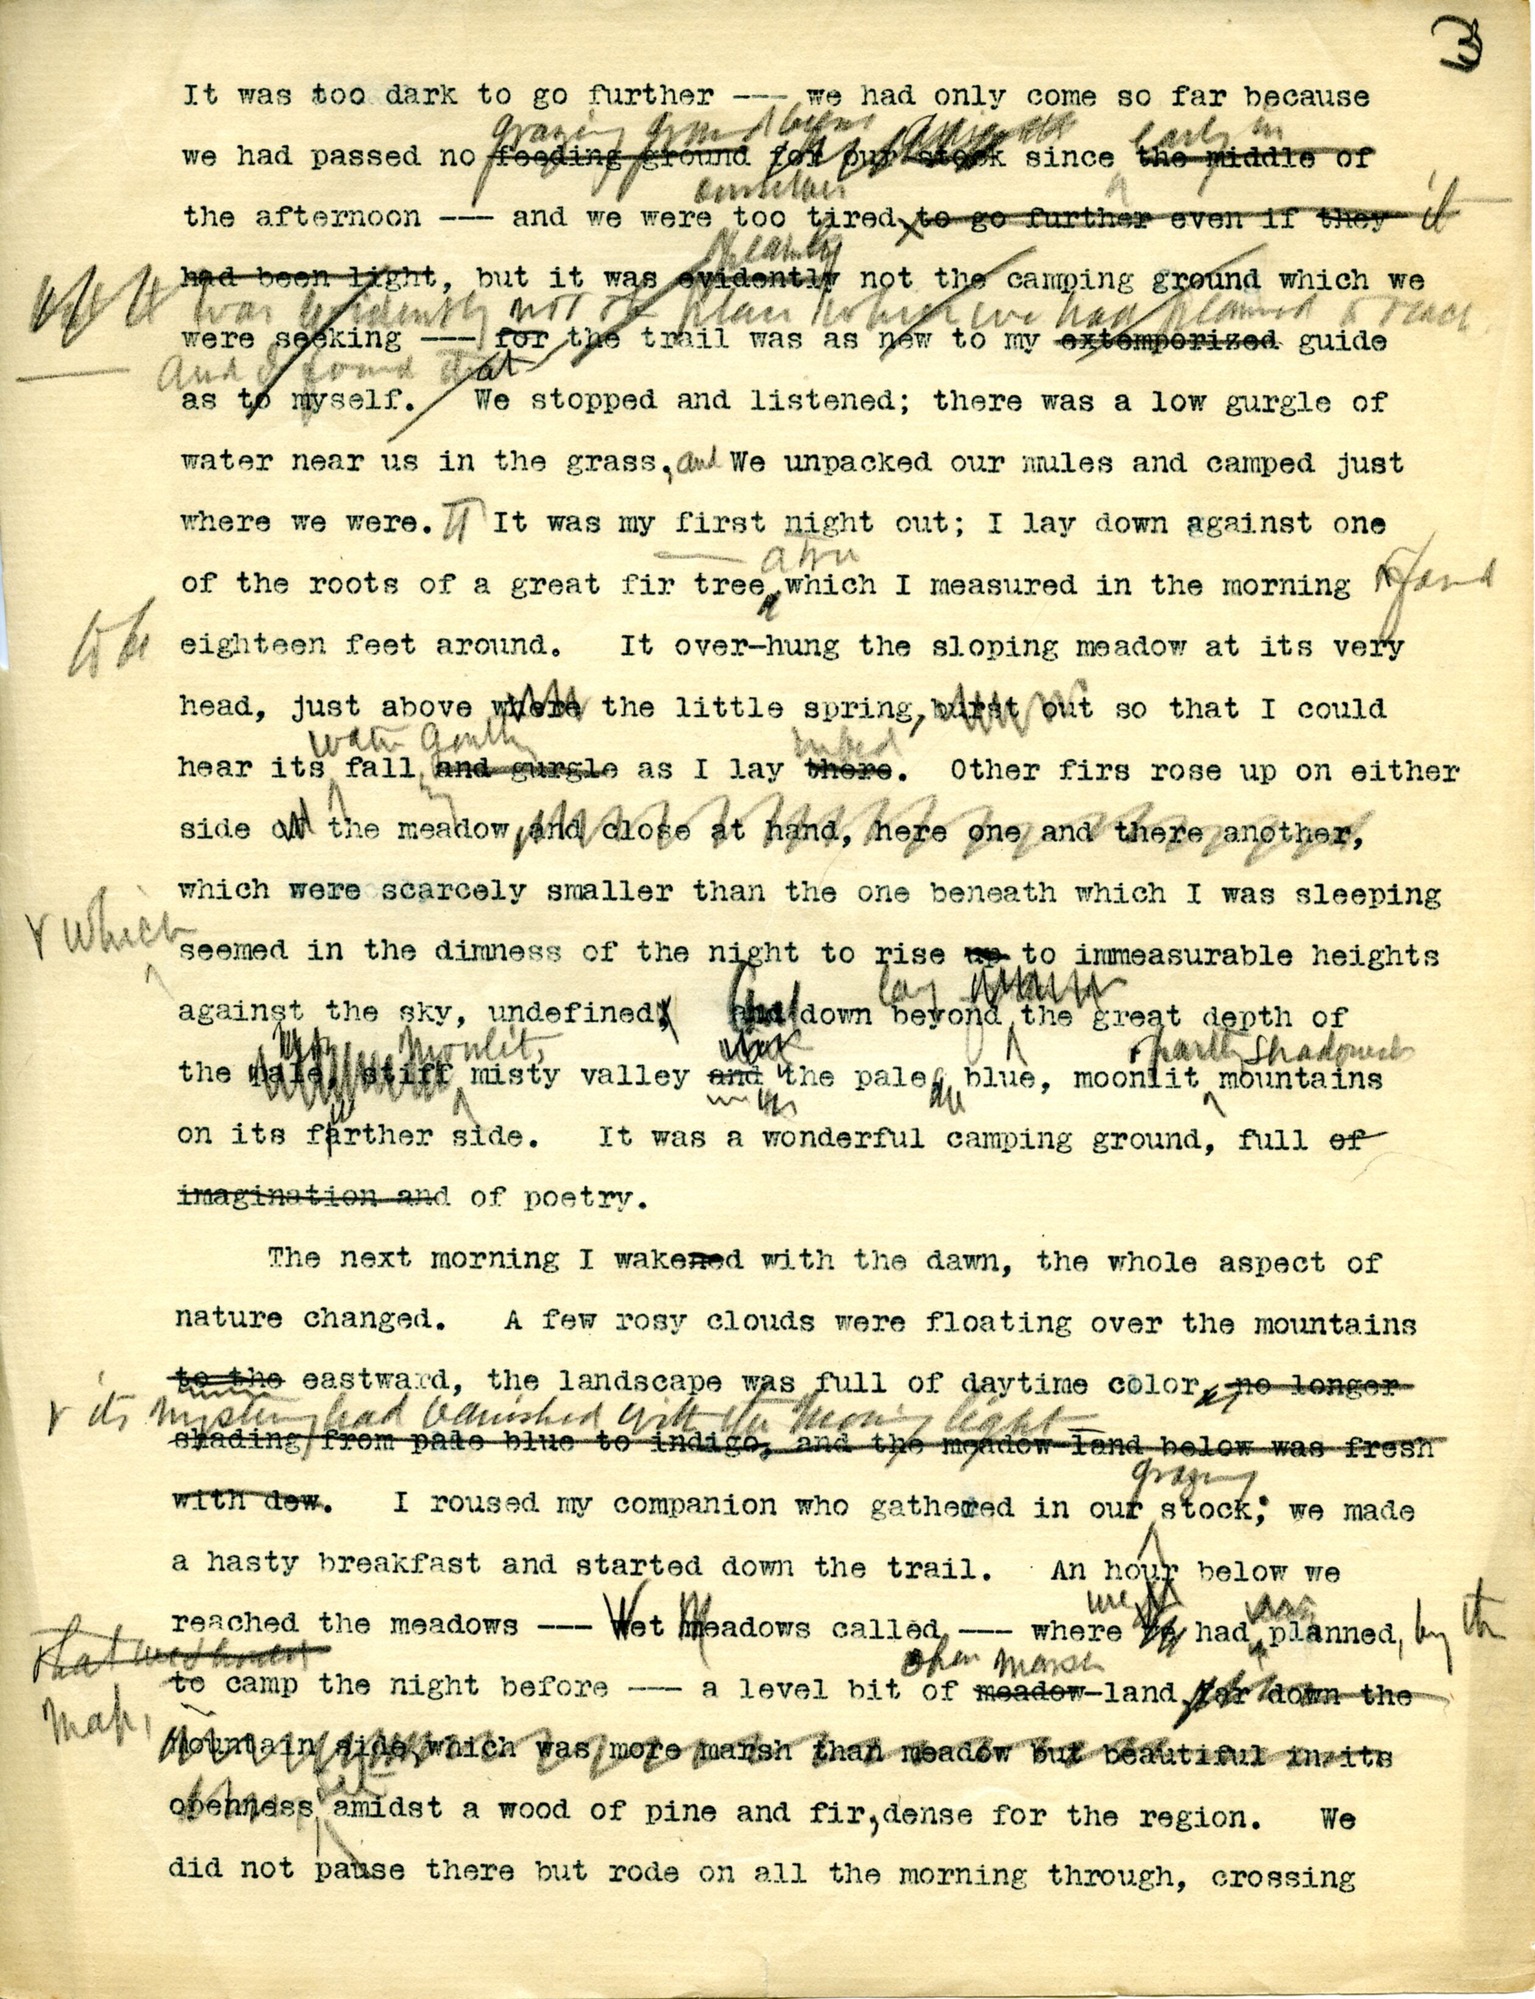 3
It was too dark to go further --- we had only come so far because
grazing ground
we had passed no feeding ground for our stock since the middle of
early in
ourselves
the afternoon --- and we were too tired to go further even if they it
had been light, but it was evidently not the camping ground which we
was evidently not the place which we had planned to reach
were seeking --- for the trail was as new to my extemporized guide
and I found that
as to myself. We stopped and listened; there was a low gurgle of
water near us in the grass, and We unpacked our mules and camped just
where we were. It was my first night out; I lay down against one
a tree
of the roots of a great fir tree, which I measured in the morning & found
to be eighteen feet around. It over-hung the sloping meadow at its very
head, just above where the little spring, burst out so that I could
water gently
hear its fall, and gurgle as I lay there. Other firs rose up on either
in bed
side of the meadow, and close at hand, here one and there another,
which were scarcely smaller than the one beneath which I was sleeping
& which seemed in the dimness of the night to rise up to immeasurable heights
against the sky, undefined; and down beyond the great depth of
lay
moonlit,
the pale, stiff misty valley and the pale, blue, moonlit mountains
& partly shadowed
on its farther side. It was a wonderful camping ground, full of
imagination and of poetry.
The next morning I wakened with the dawn, the whole aspect of
nature changed. A few rosy clouds were floating over the mountains
to the eastward, the landscape was full of daytime color, no longer
& its mystery had vanished with the moon light
shading from pale blue to indigo, and the meadow land below was fresh
grazing
with dew. I roused my companion who gathered in our stock; we made
a hasty breakfast and started down the trail. An hour below we
reached the meadows --- Wet Meadows called, --- where we had planned, by the
we
That we should
map,
open marsh
to camp the night before --- a level bit of meadow-land, far down the
mountain side, which was more marsh than meadow but beautiful in its
openness amidst a wood of pine and fir, dense for the region. We
did not pause there but rode on all the morning through, crossing